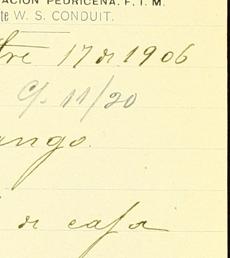 ACION PEDRICEÑA. F. I. M.
te W. S. CONDUIT.
bre 17 de 1906
C/. 11/20
ango.
de cafa